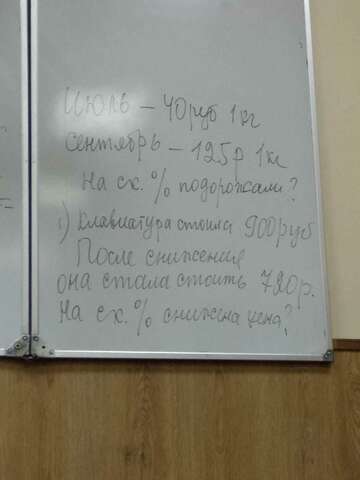 Июль – 40руб 1кг
сентябрь – 125р 1кг
На ск. % подорожали?
1) Клавиатура стоила 900руб
После снижения
она стала стоить 720р.
На ск. % снижена цена?